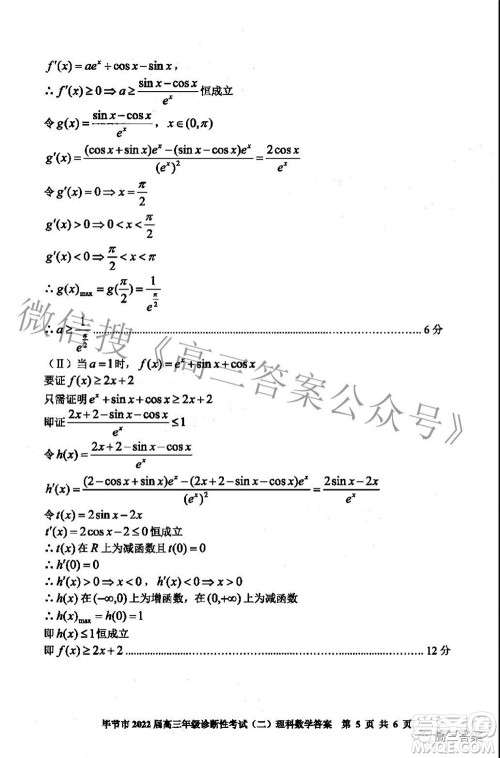 f′(x)=ae^x+cos x−sin x，
∴f′(x)≥0⇒a≥(sin x−cos x)/e^x 恒成立
令g(x)=(sin x−cos x)/e^x，x∈(0,π)
g′(x)=((cos x+sin x)e^x−(sin x−cos x)e^x)/(e^x)^2=2cos x/e^x
令g′(x)=0⇒x=π/2
g′(x)>0⇒0<x<π/2
g′(x)<0⇒π/2<x<π
∴g(x)max=g(π/2)=1/e^(π/2)
∴a≥1/e^(π/2)……6分
（Ⅱ）当a=1时，f(x)=e^x+sin x+cos x
要证f(x)≥2x+2
只需证明e^x+sin x+cos x≥2x+2
即证(2x+2−sin x−cos x)/e^x≤1
令h(x)=(2x+2−sin x−cos x)/e^x
h′(x)=((2−cos x+sin x)e^x−(2x+2−sin x−cos x)e^x)/(e^x)^2=(2sin x−2x)/e^x
令t(x)=2sin x−2x
t′(x)=2cos x−2≤0恒成立
∴t(x)在R上为减函数且t(0)=0
∴h′(0)=0
∴h′(x)>0⇒x<0，h′(x)<0⇒x>0
∴h(x)在(−∞,0)上为增函数，在(0,+∞)上为减函数
∴h(x)max=h(0)=1
即h(x)≤1恒成立
即f(x)≥2x+2……12分
微信搜《高三答案公众号》
毕节市2022届高三年级诊断性考试（二）理科数学答案 第 5 页 共 6 页
高三答案